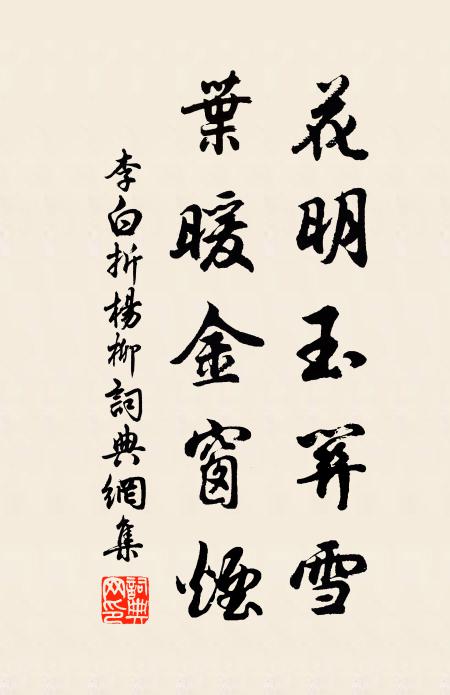 花明玉關雪
葉暖金窗煙
李白折楊柳詞典網集
詞典网印